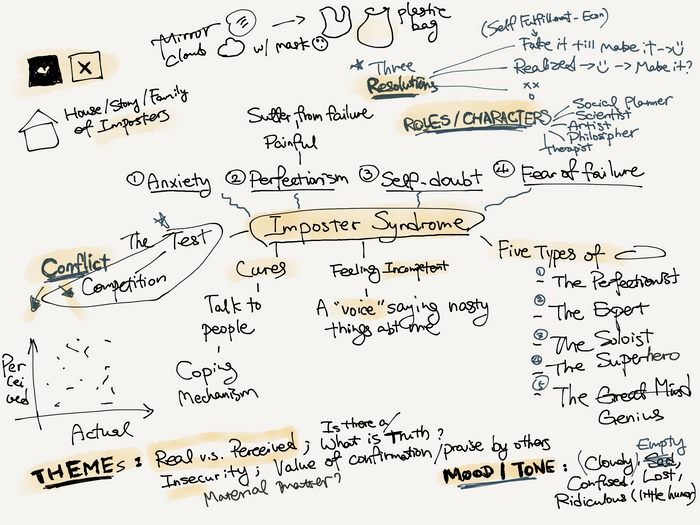 Mirror
Cloud w/ mask
plastic
bag
(Self Fulfillment - Econ)
Fake it till make it ->
Realized -> -> Make it?
* Three
Resolutions
xx
House/Story/Family
of Imposters
Suffer from failure
Painful
ROLES/CHARACTERS
Social Planner
Scientist
Artist
Philospher
therapist
① Anxiety ② Perfectionism ③ Self-doubt ④ Fear of failure
Imposter Syndrome
The Test
Conflict
Competition
Cures
Talk to
people
Coping
Mechanism
Feeling Incompetent
A "voice" saying nasty
things abt me
Five Types of
① - The Perfectionist
② - The Expert
③ - The Soloist
④ - The Superhero
⑤ - The Great Mind
Genius
Per
cei
ved
Actual
THEMEs : Real v.s. Perceived ; What is Truth ?
Is there a
Insecurity ; Value of confirmation/praise by others
Material matter?
MOOD / TONE : (Cloudy), Sad,
Empty
Confused, Lost,
Ridiculous (little humor)